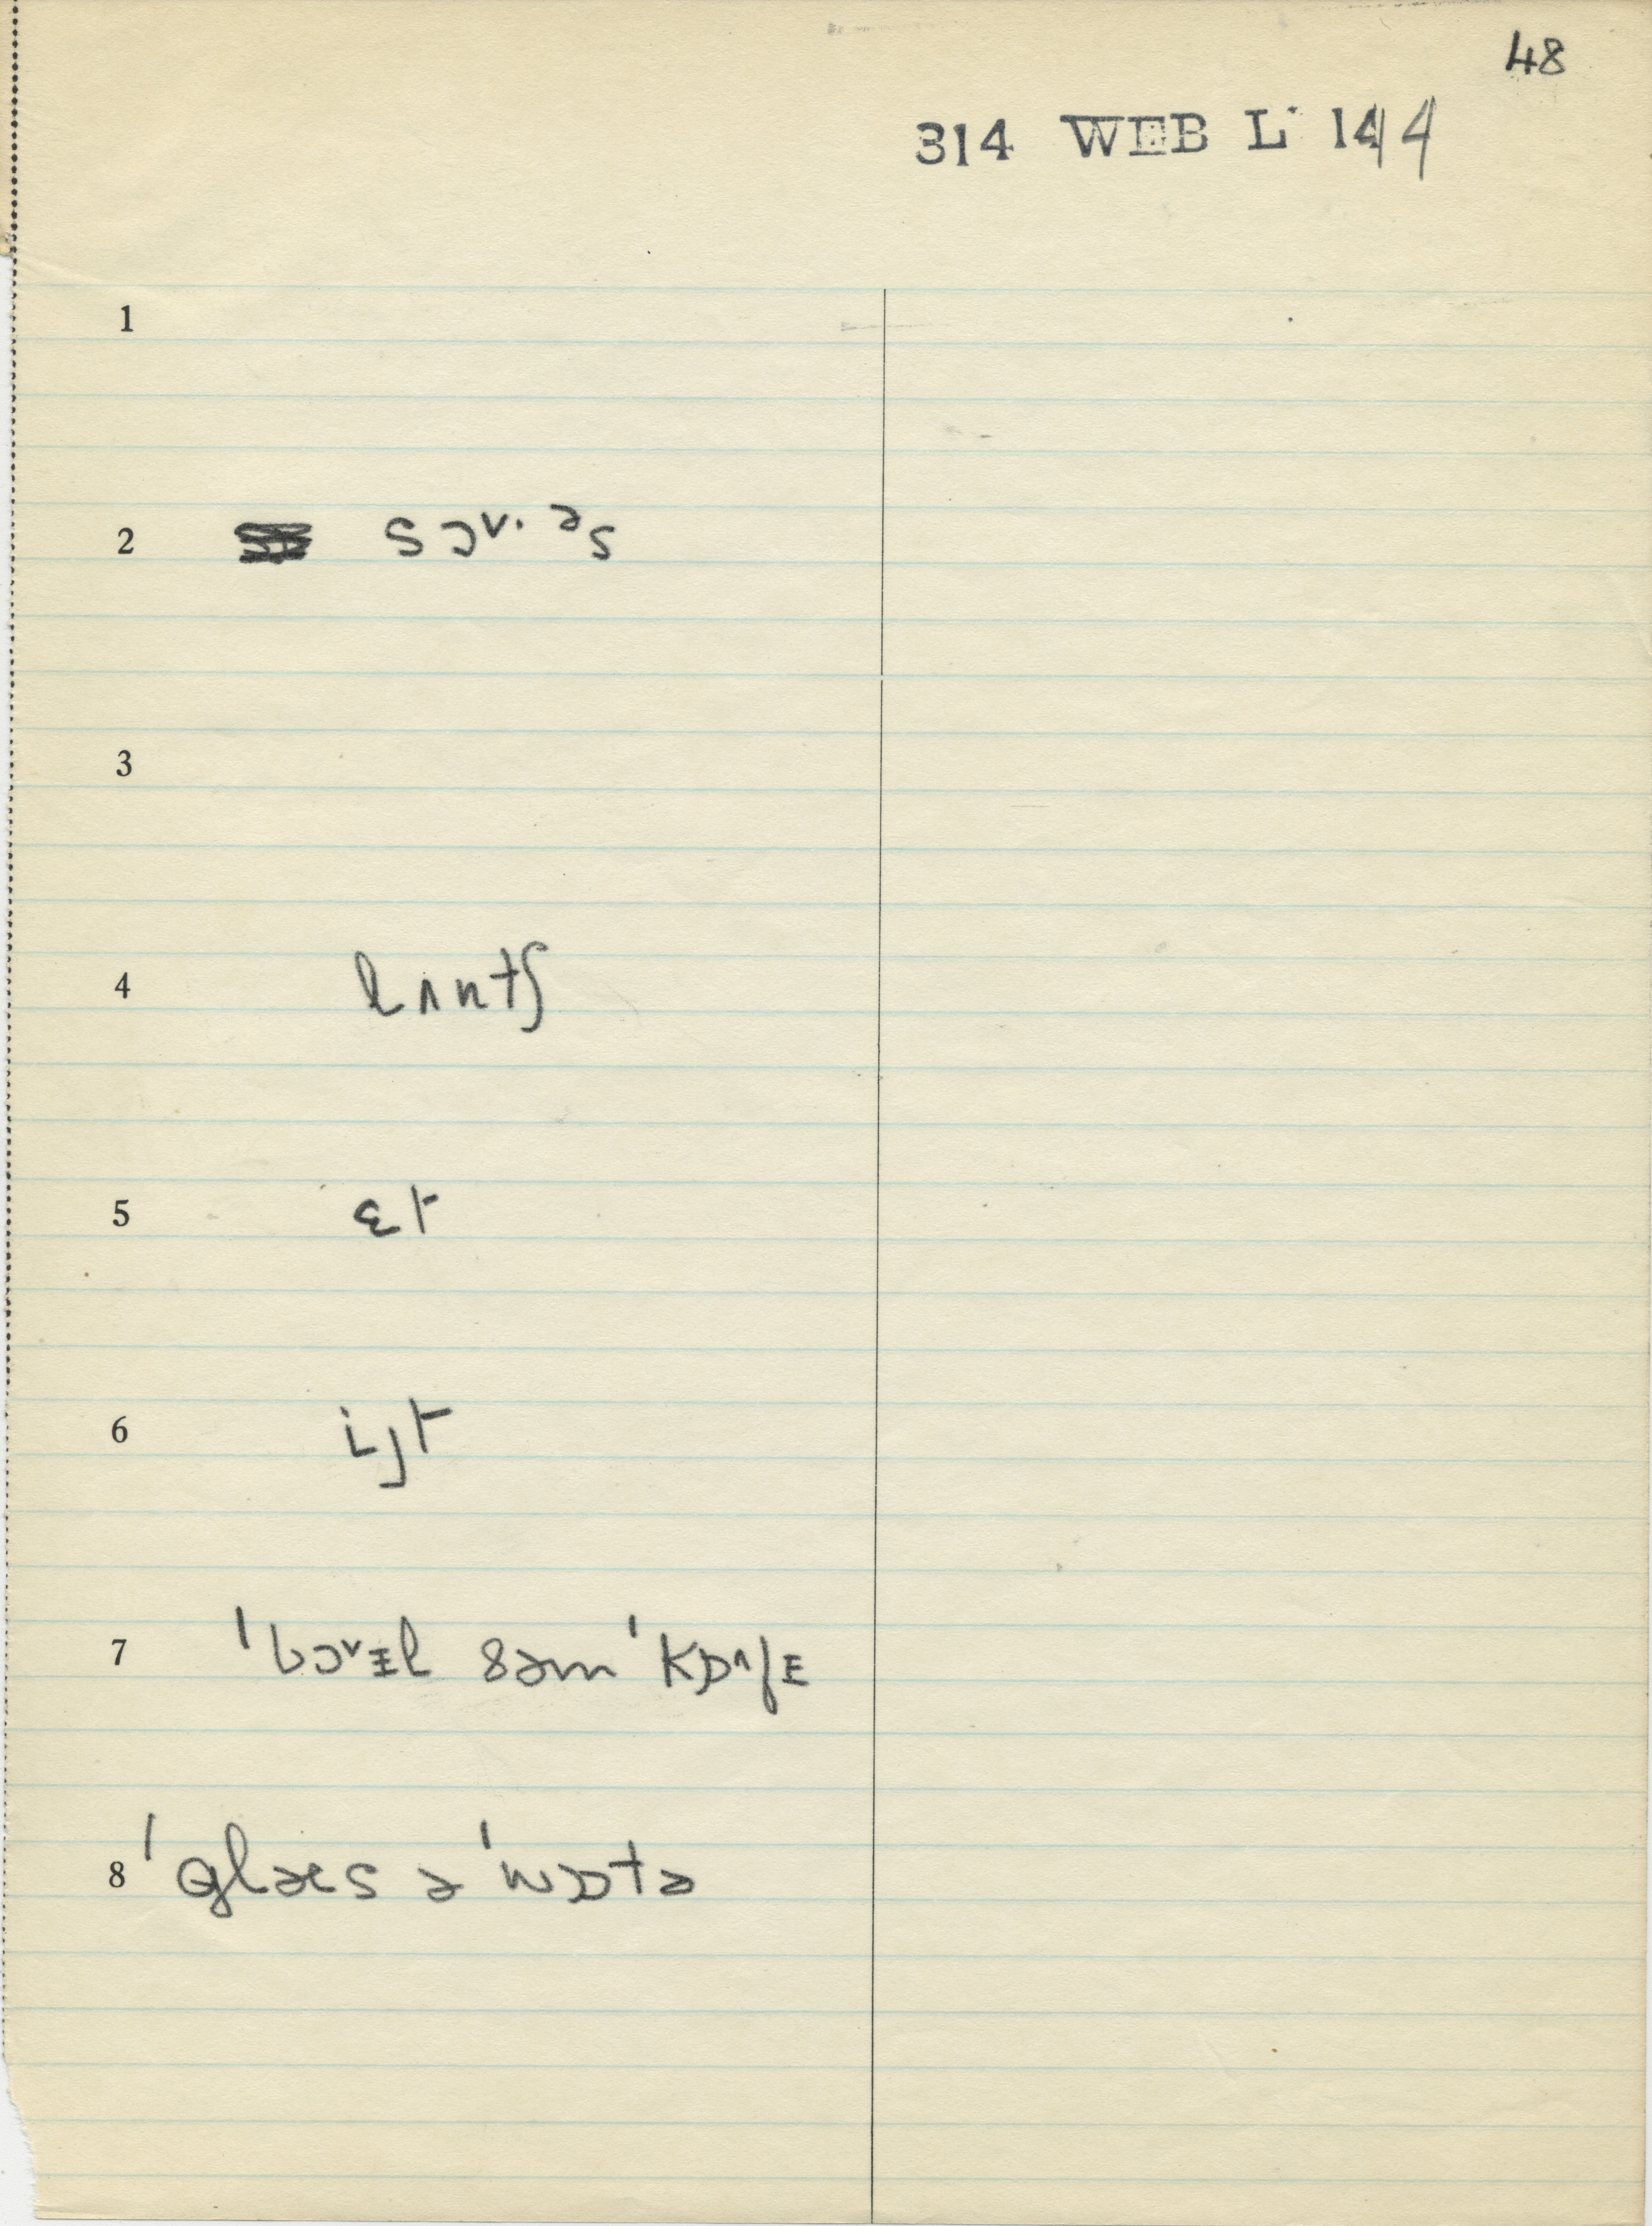 48
314 WEB L 144
1
2 sɔᵛ·ᵊs
3
4 lʌntʃ
5 ɛt
6 iɟt
7 ˈbɔᵛᵻl səm ˈkɒᶺfᵻ
8 ˈglæs ə ˈwɒtə